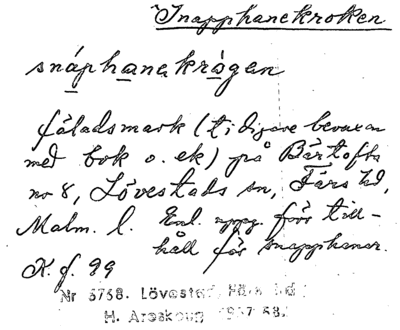 Snapphanekroken
snáphanakrågan
fäladsmark (tidigare bevuxen
med bok o. ek) på Bårtofta
no 8, Lövestads sn, Färs hd,
Malm. l. Enl. uppg. förr till-
håll för snapphanar.
K. f. 99
Nr 5758. Lövestad, Färs hd
H. Areskoug 1937 68.